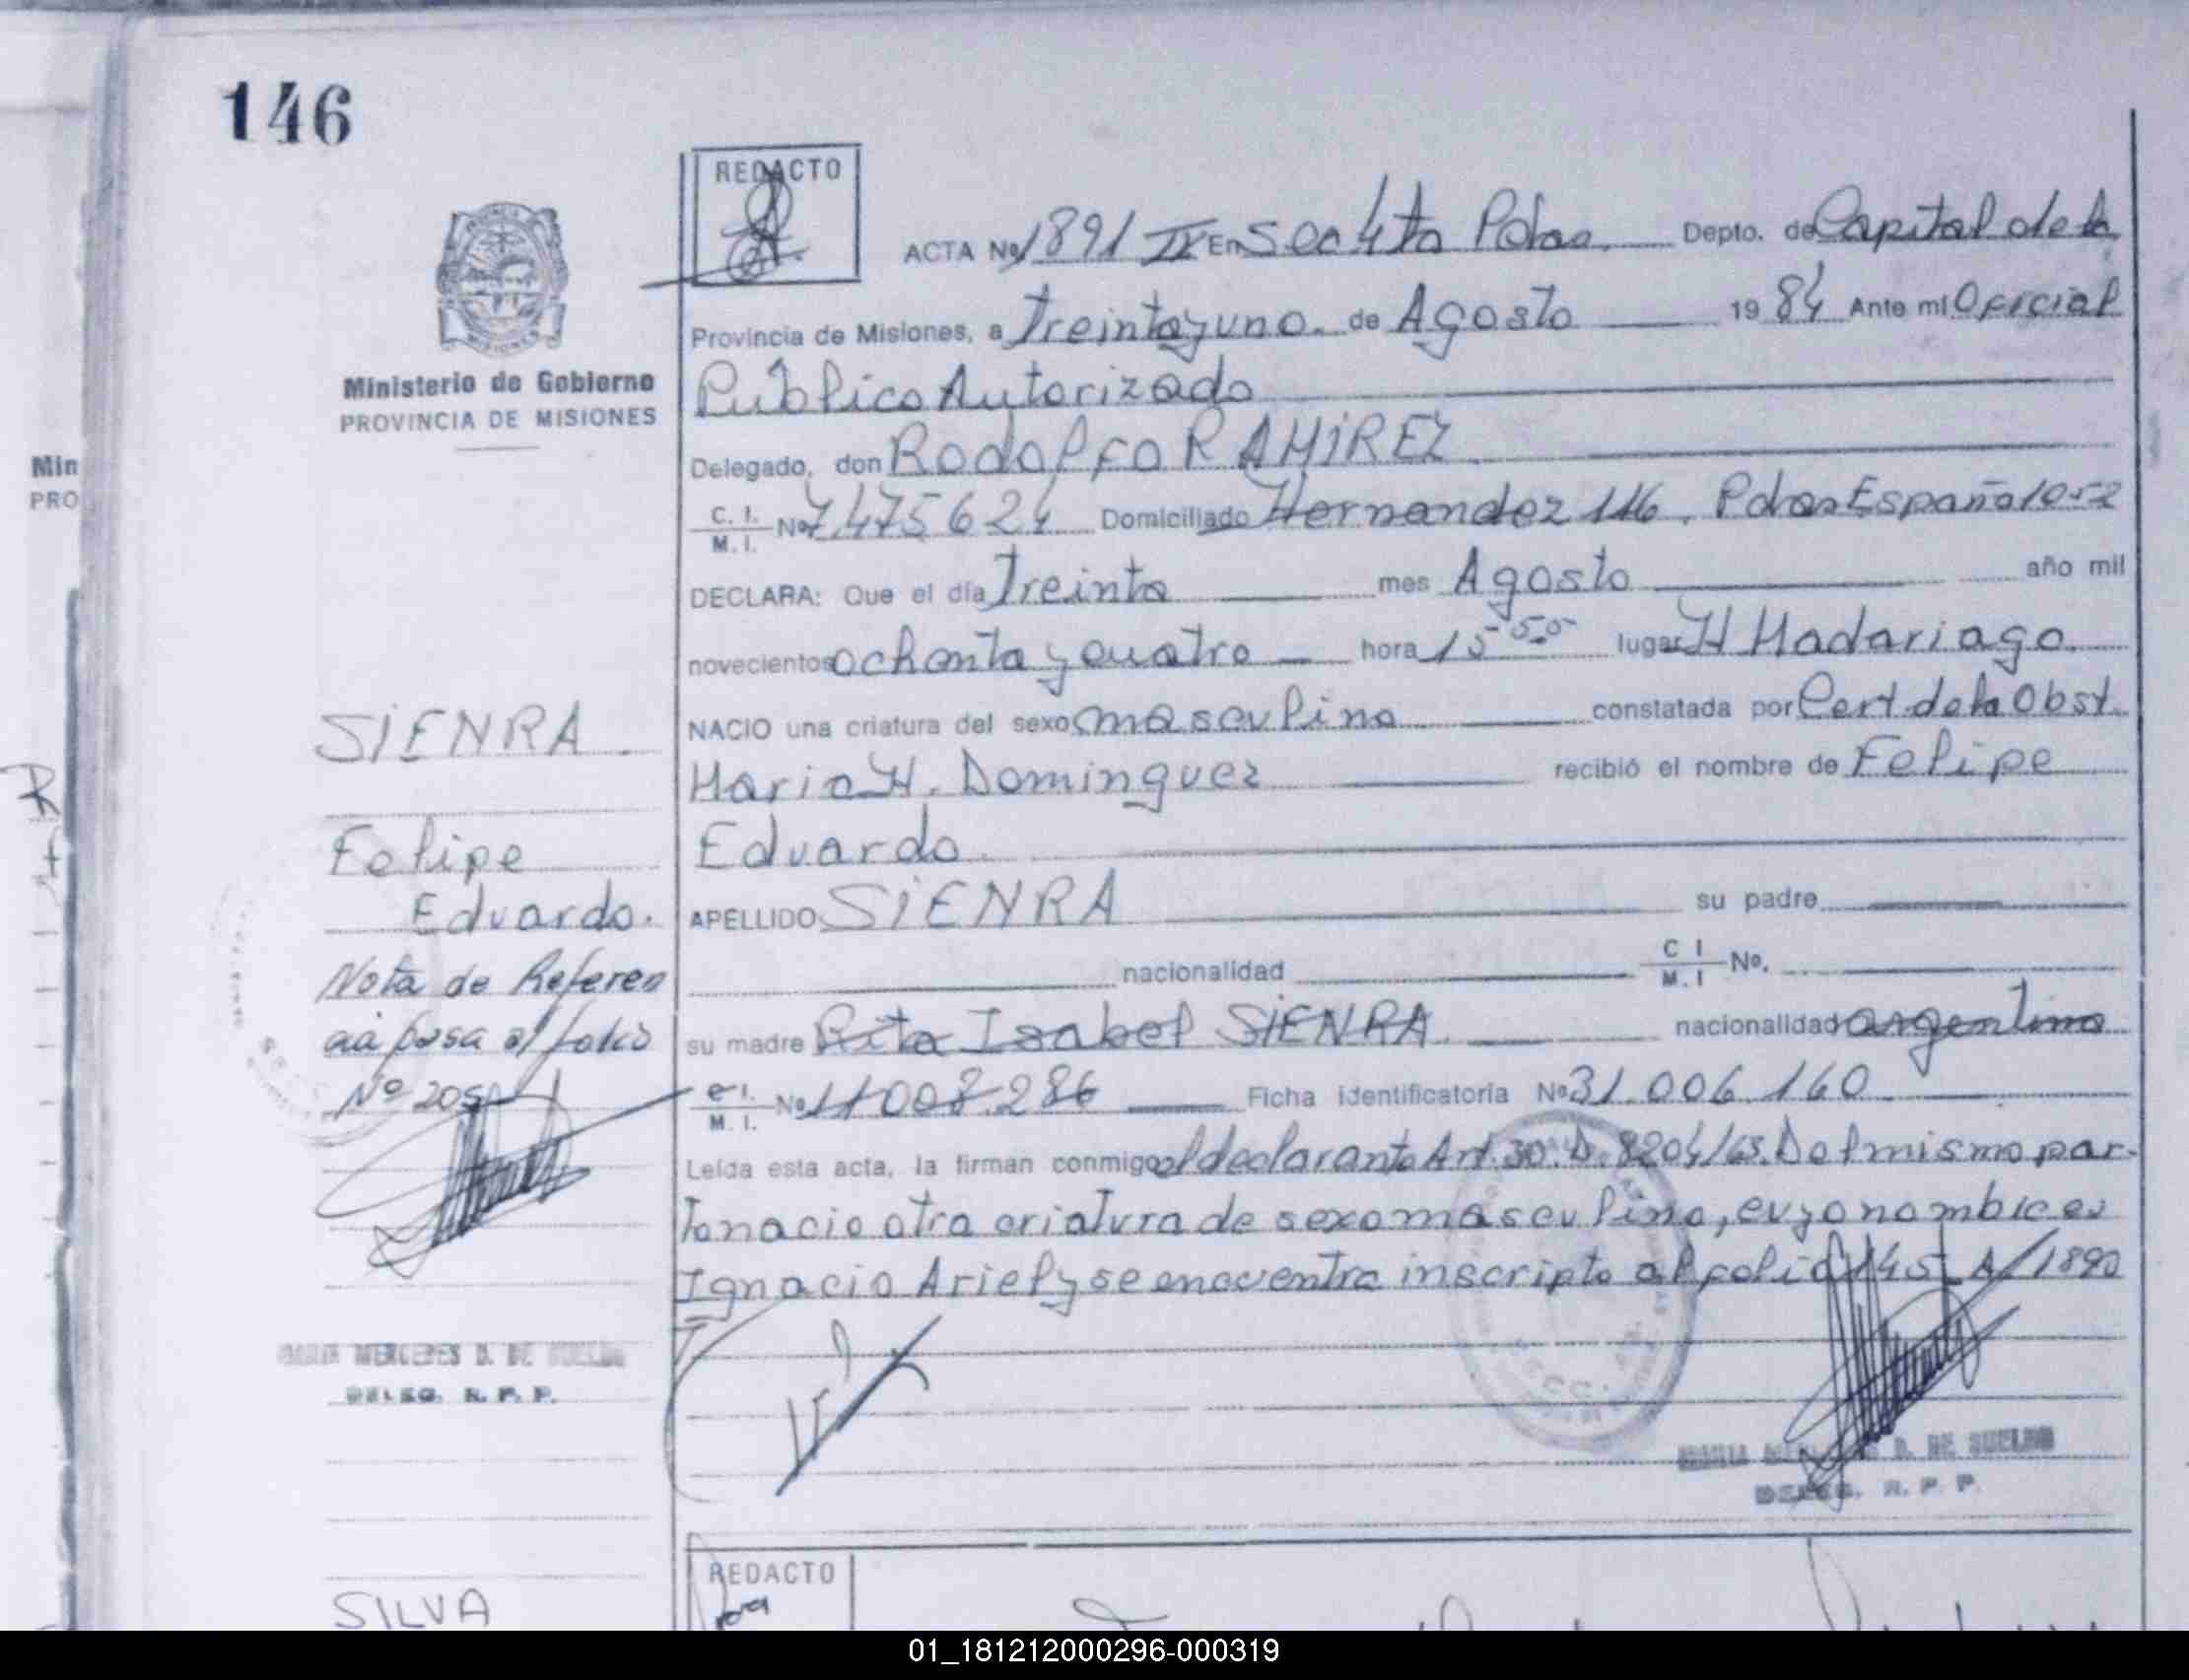 146
REDACTO
ACTA Nº 1891 IV En Secc 4ta Pdas. Depto. de Capital de la
Provincia de Misiones, a treinta y uno. de Agosto 1984 Ante mi Oficial
Público Autorizado
Delegado, don Rodolfo RAMIREZ
C. I. M. I. Nº 7.475624 Domiciliado Hernandez 116. Pdas España 1052
DECLARA: Que el día Treinta mes Agosto año mil
novecientos ochenta y cuatro hora 15 50 lugar H Madariaga
NACIO una criatura del sexo masculino constatada por Cert. de la Obst.
Maria H. Dominguez recibió el nombre de Felipe
Eduardo.
APELLIDO SIENRA su padre
nacionalidad C I M. I Nº.
su madre Rita Isabel SIENRA nacionalidad argentina
C I. M. I. Nº 11008.286 Ficha identificatoria Nº 31.006.160
Leída esta acta, la firman conmigo el declarante Art. 30. D. 8204/63. Del mismo par-
to nacio otra criatura de sexo masculino, cuyo nombre es
Ignacio Ariel y se encuentra inscripto al folio 145 A/1890
Ministerio de Gobierno
PROVINCIA DE MISIONES
SIENRA
Felipe
Eduardo.
Nota de Referen
cia pasa al folio
Nº 205
MARIA MERCEDES D. DE SUELDO
DELEG. R. P. P.
MARIA D. DE SUELDO
DELEG. R. P. P.
Min
PRO
REDACTO
SILVA
01_181212000296-000319